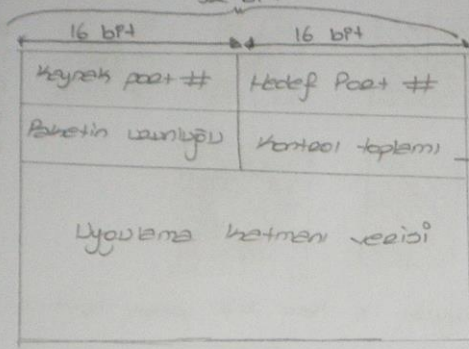 16 bit 16 bit
Kaynak port # Hedef Port #
Paketin uzunluğu Kontrol toplamı
Uygulama katmanı verisi